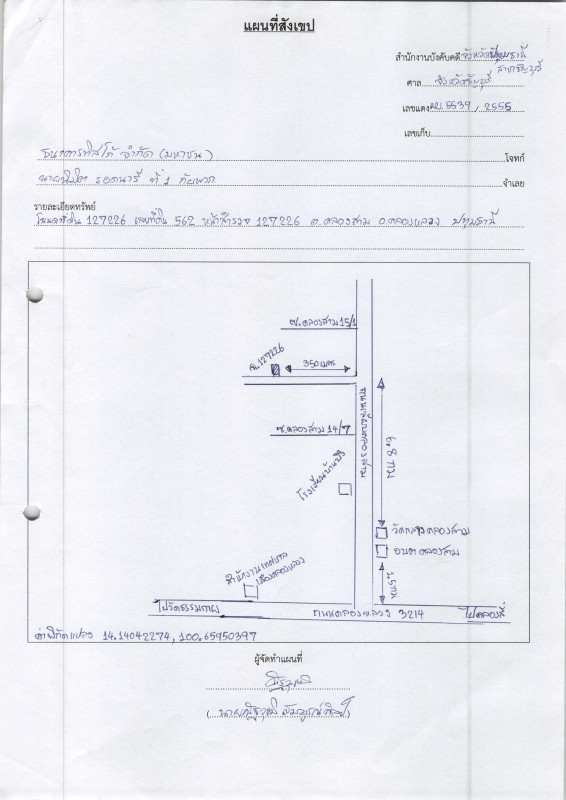 แผนที่สังเขป
สำนักงานบังคับคดี จังหวัดปทุมธานี
สาขาธัญบุรี
ศาล จังหวัดธัญบุรี
เลขแดง ผบ.5539 / 2555
เลขเก็บ
ธนาคารทิสโก้ จำกัด (มหาชน) โจทก์
ที่ 1 จำเลย
รายละเอียดทรัพย์
โฉนดที่ดิน 127226 เลขที่ดิน 562 หน้าสำรวจ 127226 ต.คลองสาม อ.คลองหลวง ปทุมธานี
ซ.คลองสาม 15/1
ฉ.127226
350 เมตร
ซ.คลองสาม 14/7
ถนนเลียบคลองสาม
6.8 กม
โรงเรียน
วัดกลางคลองสาม
อบต คลองสาม
1.5 กม
สำนักงานเทศบาล
เมืองคลองหลวง
ไปวัดธรรมกาย
ถนนคลองหลวง 3214
ไปคลองสี่
ค่าพิกัดแปลง 14.14042274, 100.65950397
ผู้จัดทำแผนที่